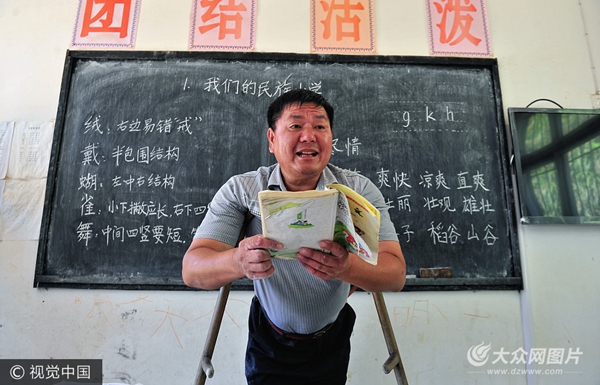 团 结 活 泼
1. 我们的民族小学
绒: 右边易错"戒"
戴: 半包围结构
蝴: 左中右结构
雀: 小下撇应长,右下四
舞: 中间四竖要短,
g k h
情
爽快 凉爽 直爽
壮观 雄壮
子 稻谷 山谷
© 视觉中国
大众网图片
www.dzwww.com